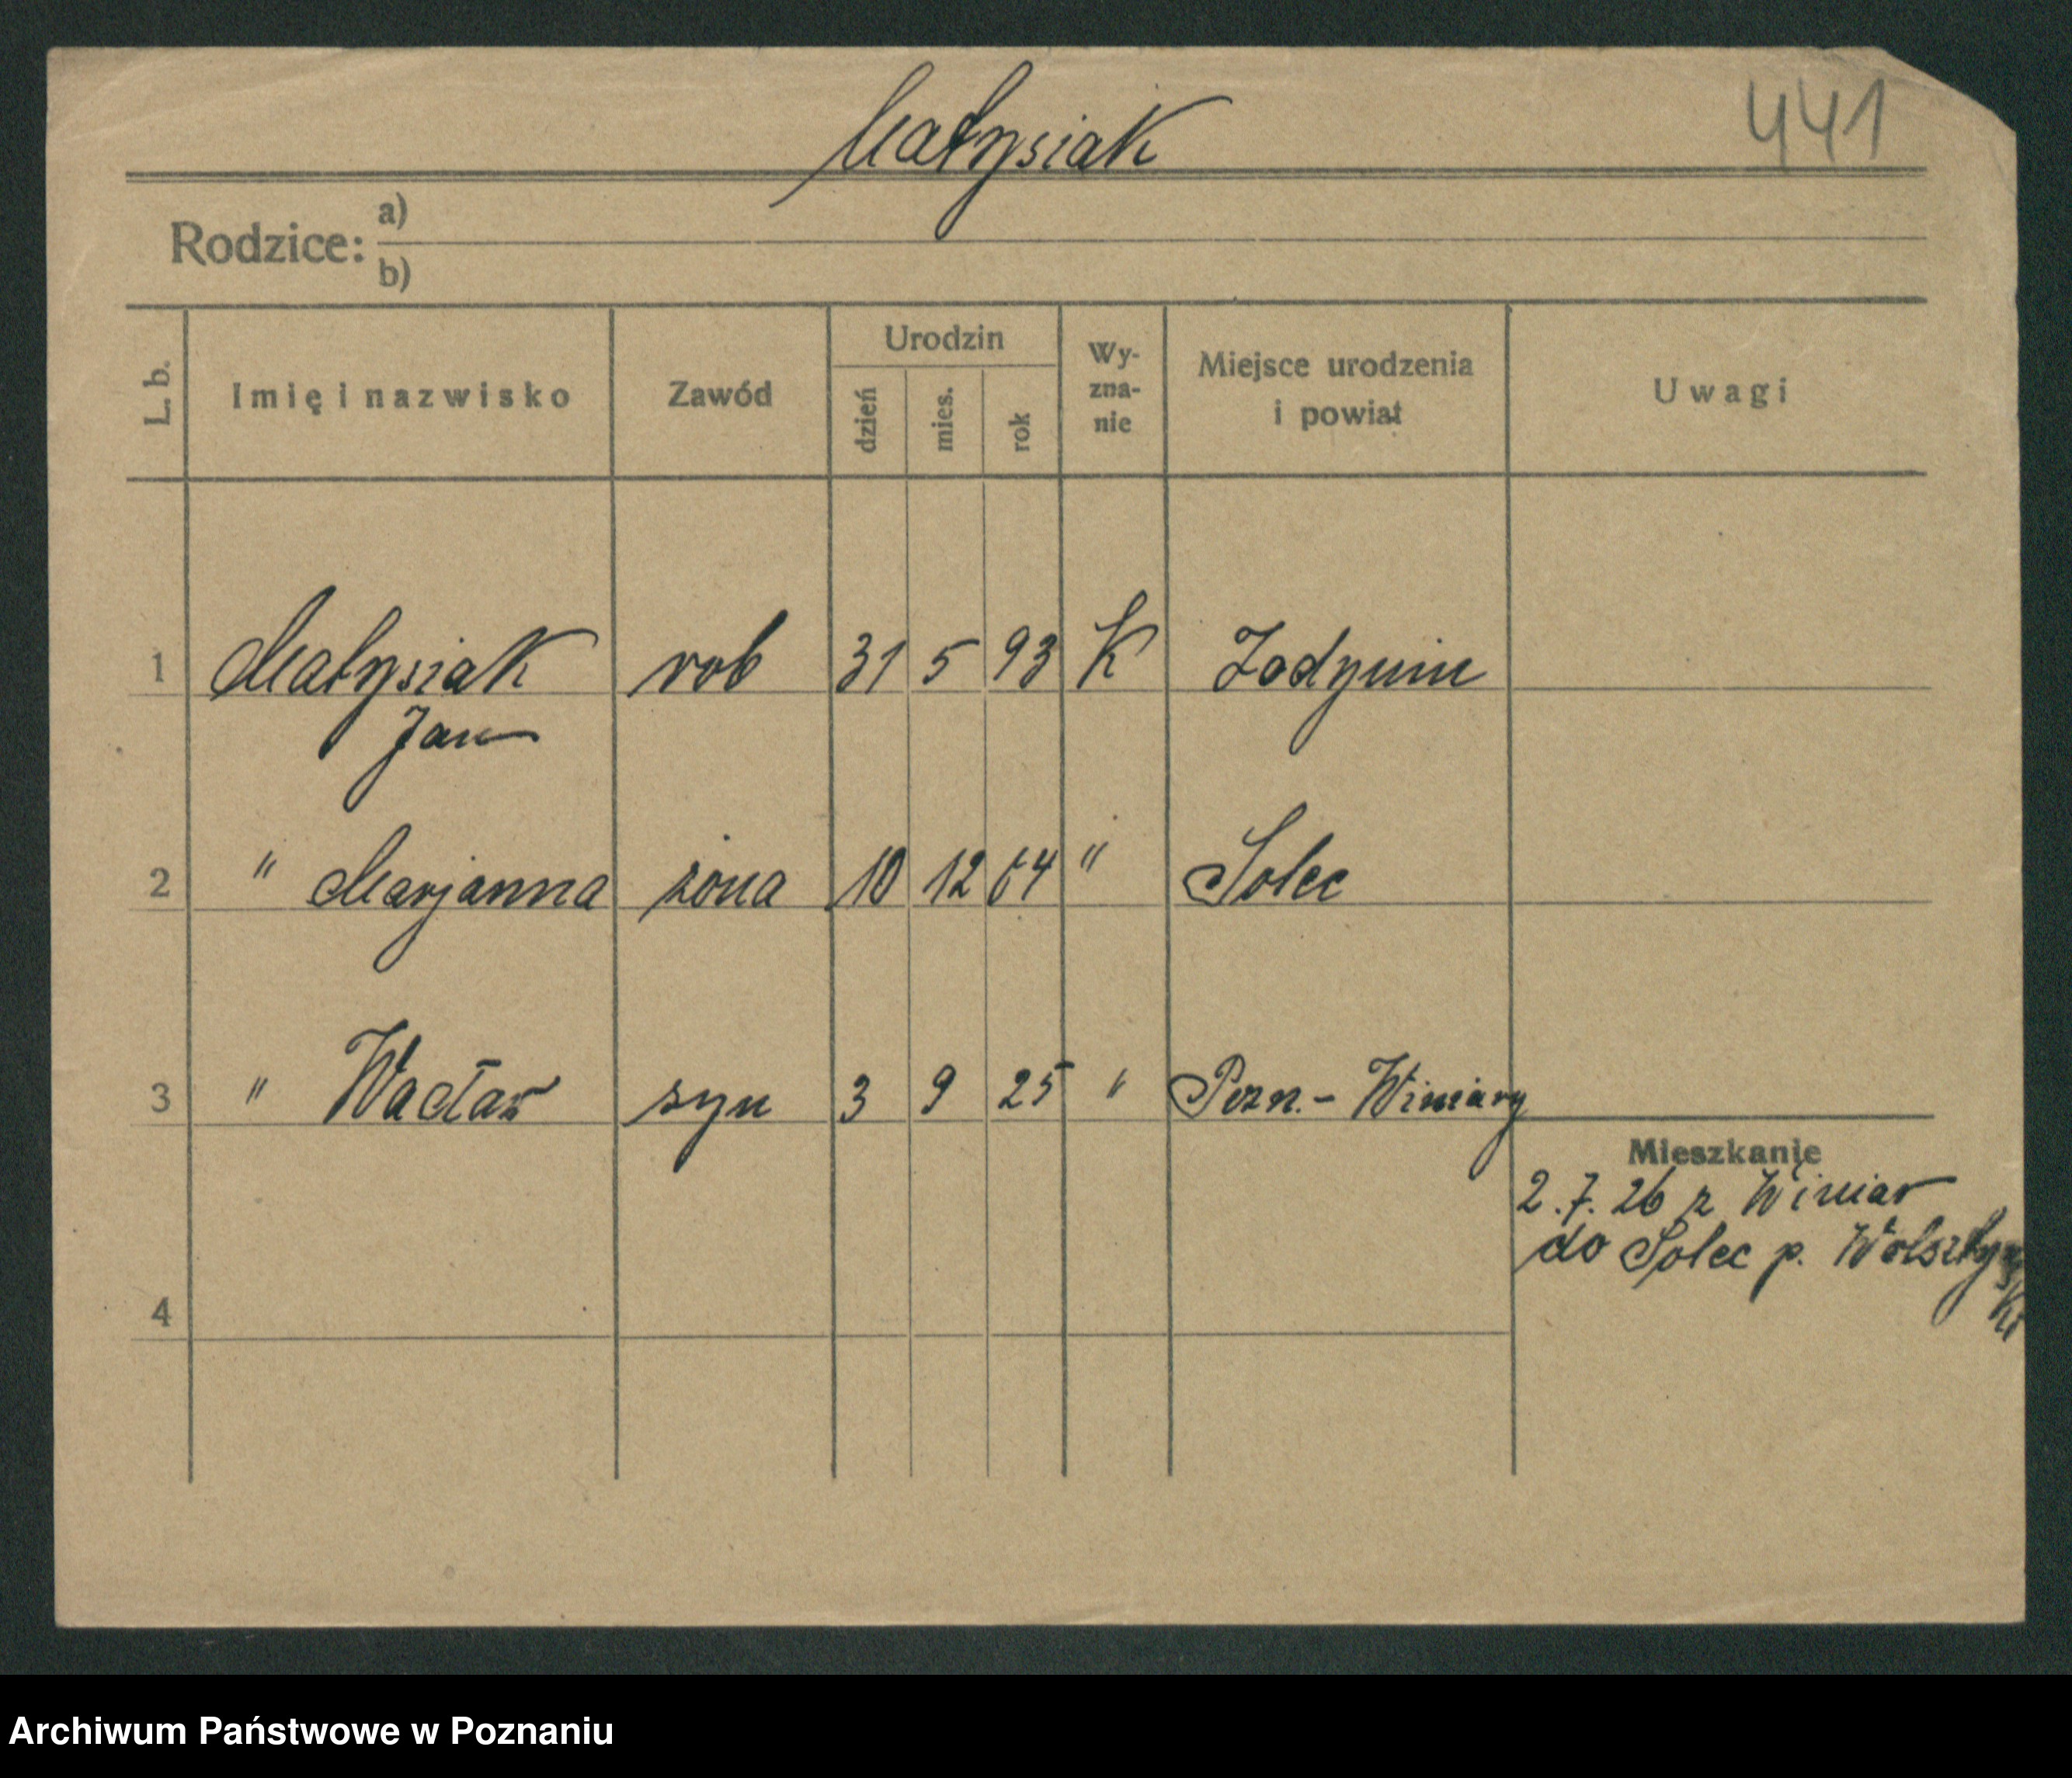 Małysiak
441
Rodzice: a)
b)
L. b. Imię i nazwisko Zawód Urodzin dzień mies. rok Wy-zna-nie Miejsce urodzenia i powiat Uwagi
1 Małysiak rob 31 5 93 K Zodynin
Jan
2 " Marjanna żona 10 12 64 " Solec
3 " Wacław syn 3 9 25 " Pozn.- Winiary
Mieszkanie
2.7.26 z Winiar
do Solec p. Wolsztyński
4
Archiwum Państwowe w Poznaniu